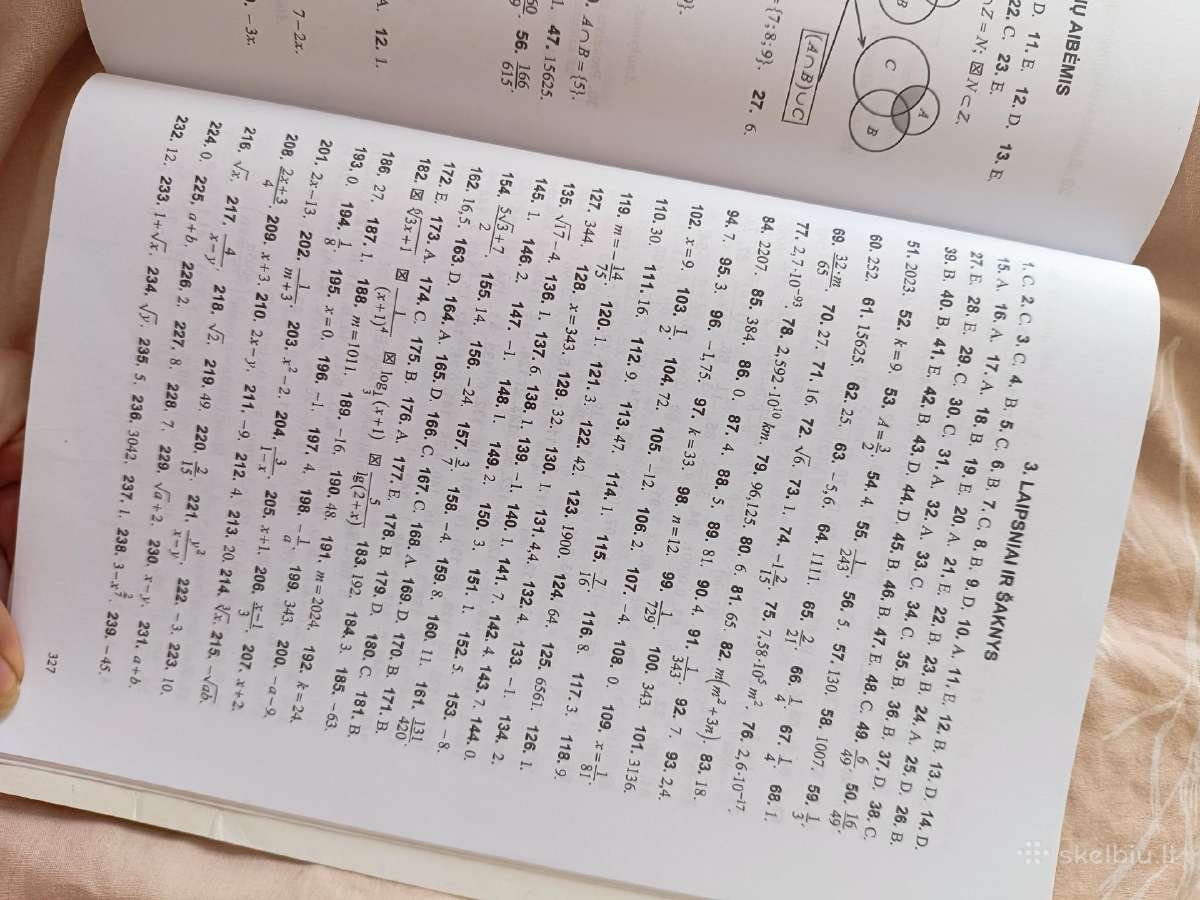 IŲ AIBĖMIS
D. 11. E. 12. D. 13. E.
22. C. 23. E.
∩Z = N; ☒ N ⊂ Z.
B
C
A
B
(A∩B)∪C
= {7; 8; 9}. 27. 6.
9}.
9. A∩B = {5}.
1. 47. 15625.
56. 166/615.
A. 12. 1.
7 − 2x.
9. −3x.
3. LAIPSNIAI IR ŠAKNYS
1. C. 2. C. 3. C. 4. B. 5. C. 6. B. 7. C. 8. B. 9. D. 10. A. 11. E. 12. B. 13. D. 14. D.
15. A. 16. A. 17. A. 18. B. 19. E. 20. A. 21. E. 22. B. 23. B. 24. A. 25. D. 26. B.
27. E. 28. E. 29. C. 30. C. 31. A. 32. A. 33. C. 34. C. 35. B. 36. B. 37. D. 38. C.
39. B. 40. B. 41. E. 42. B. 43. D. 44. D. 45. B. 46. B. 47. E. 48. C. 49. 6/49. 50. 16/49.
51. 2023. 52. k = 9. 53. A = 3/2. 54. 4. 55. 1/243. 56. 5. 57. 130. 58. 1007. 59. 1/3.
60. 252. 61. 15625. 62. 25. 63. −5,6. 64. 1111. 65. 2/21. 66. 1/4. 67. 1/4. 68. 1.
69. 32·m/65. 70. 27. 71. 16. 72. √6. 73. 1. 74. −1 2/15. 75. 7,58·10⁵ m². 76. 2,6·10⁻¹⁷.
77. 2,7·10⁻⁹³. 78. 2,592·10¹⁰ km. 79. 96,125. 80. 6. 81. 65. 82. m(m² + 3n). 83. 18.
84. 2207. 85. 384. 86. 0. 87. 4. 88. 5. 89. 81. 90. 4. 91. 1/343. 92. 7. 93. 2,4.
94. 7. 95. 3. 96. −1,75. 97. k = 33. 98. n = 12. 99. 1/729. 100. 343. 101. 3136.
102. x = 9. 103. 1/2. 104. 72. 105. −12. 106. 2. 107. −4. 108. 0. 109. x = 1/81.
110. 30. 111. 16. 112. 9. 113. 47. 114. 1. 115. 7/16. 116. 8. 117. 3. 118. 9.
119. m = −14/75. 120. 1. 121. 3. 122. 42. 123. 1900. 124. 64. 125. 6561. 126. 1.
127. 344. 128. x = 343. 129. 32. 130. 1. 131. 4,4. 132. 4. 133. −1. 134. 2.
135. √17 − 4. 136. 1. 137. 6. 138. 1. 139. −1. 140. 1. 141. 7. 142. 4. 143. 7. 144. 0.
145. 1. 146. 2. 147. −1. 148. 1. 149. 2. 150. 3. 151. 1. 152. 5. 153. −8.
154. (5√3 + 7)/2. 155. 14. 156. −24. 157. 3/7. 158. −4. 159. 8. 160. 11. 161. 131/420.
162. 16,5. 163. D. 164. A. 165. D. 166. C. 167. C. 168. A. 169. D. 170. B. 171. B.
172. E. 173. A. 174. C. 175. B. 176. A. 177. E. 178. B. 179. D. 180. C. 181. B.
182. ☒ ⁶√(3x+1) ☒ 1/(x+1)⁴ ☒ log₁/₃(x+1) ☒ 5/lg(2+x) 183. 192. 184. 3. 185. −63.
186. 27. 187. 1. 188. m = 1011. 189. −16. 190. 48. 191. m = 2024. 192. k = 24.
193. 0. 194. 1/8. 195. x = 0. 196. −1. 197. 4. 198. −1/a. 199. 343. 200. −a − 9.
201. 2x − 13. 202. 1/(m+3). 203. x² − 2. 204. 3/(1−x). 205. x + 1. 206. (x−1)/3. 207. x + 2.
208. (2x+3)/4. 209. x + 3. 210. 2x − y. 211. −9. 212. 4. 213. 20. 214. ³√x. 215. −√ab.
216. √x. 217. 4/(x−y). 218. √2. 219. 49. 220. 2/15. 221. y²/(x−y). 222. −3. 223. 10.
224. 0. 225. a + b. 226. 2. 227. 8. 228. 7. 229. √a + 2. 230. x − y. 231. a + b.
232. 12. 233. 1 + √x. 234. √y. 235. 5. 236. 3042. 237. 1. 238. 3 − x^(2/7). 239. −45.
327
skelbiu.lt